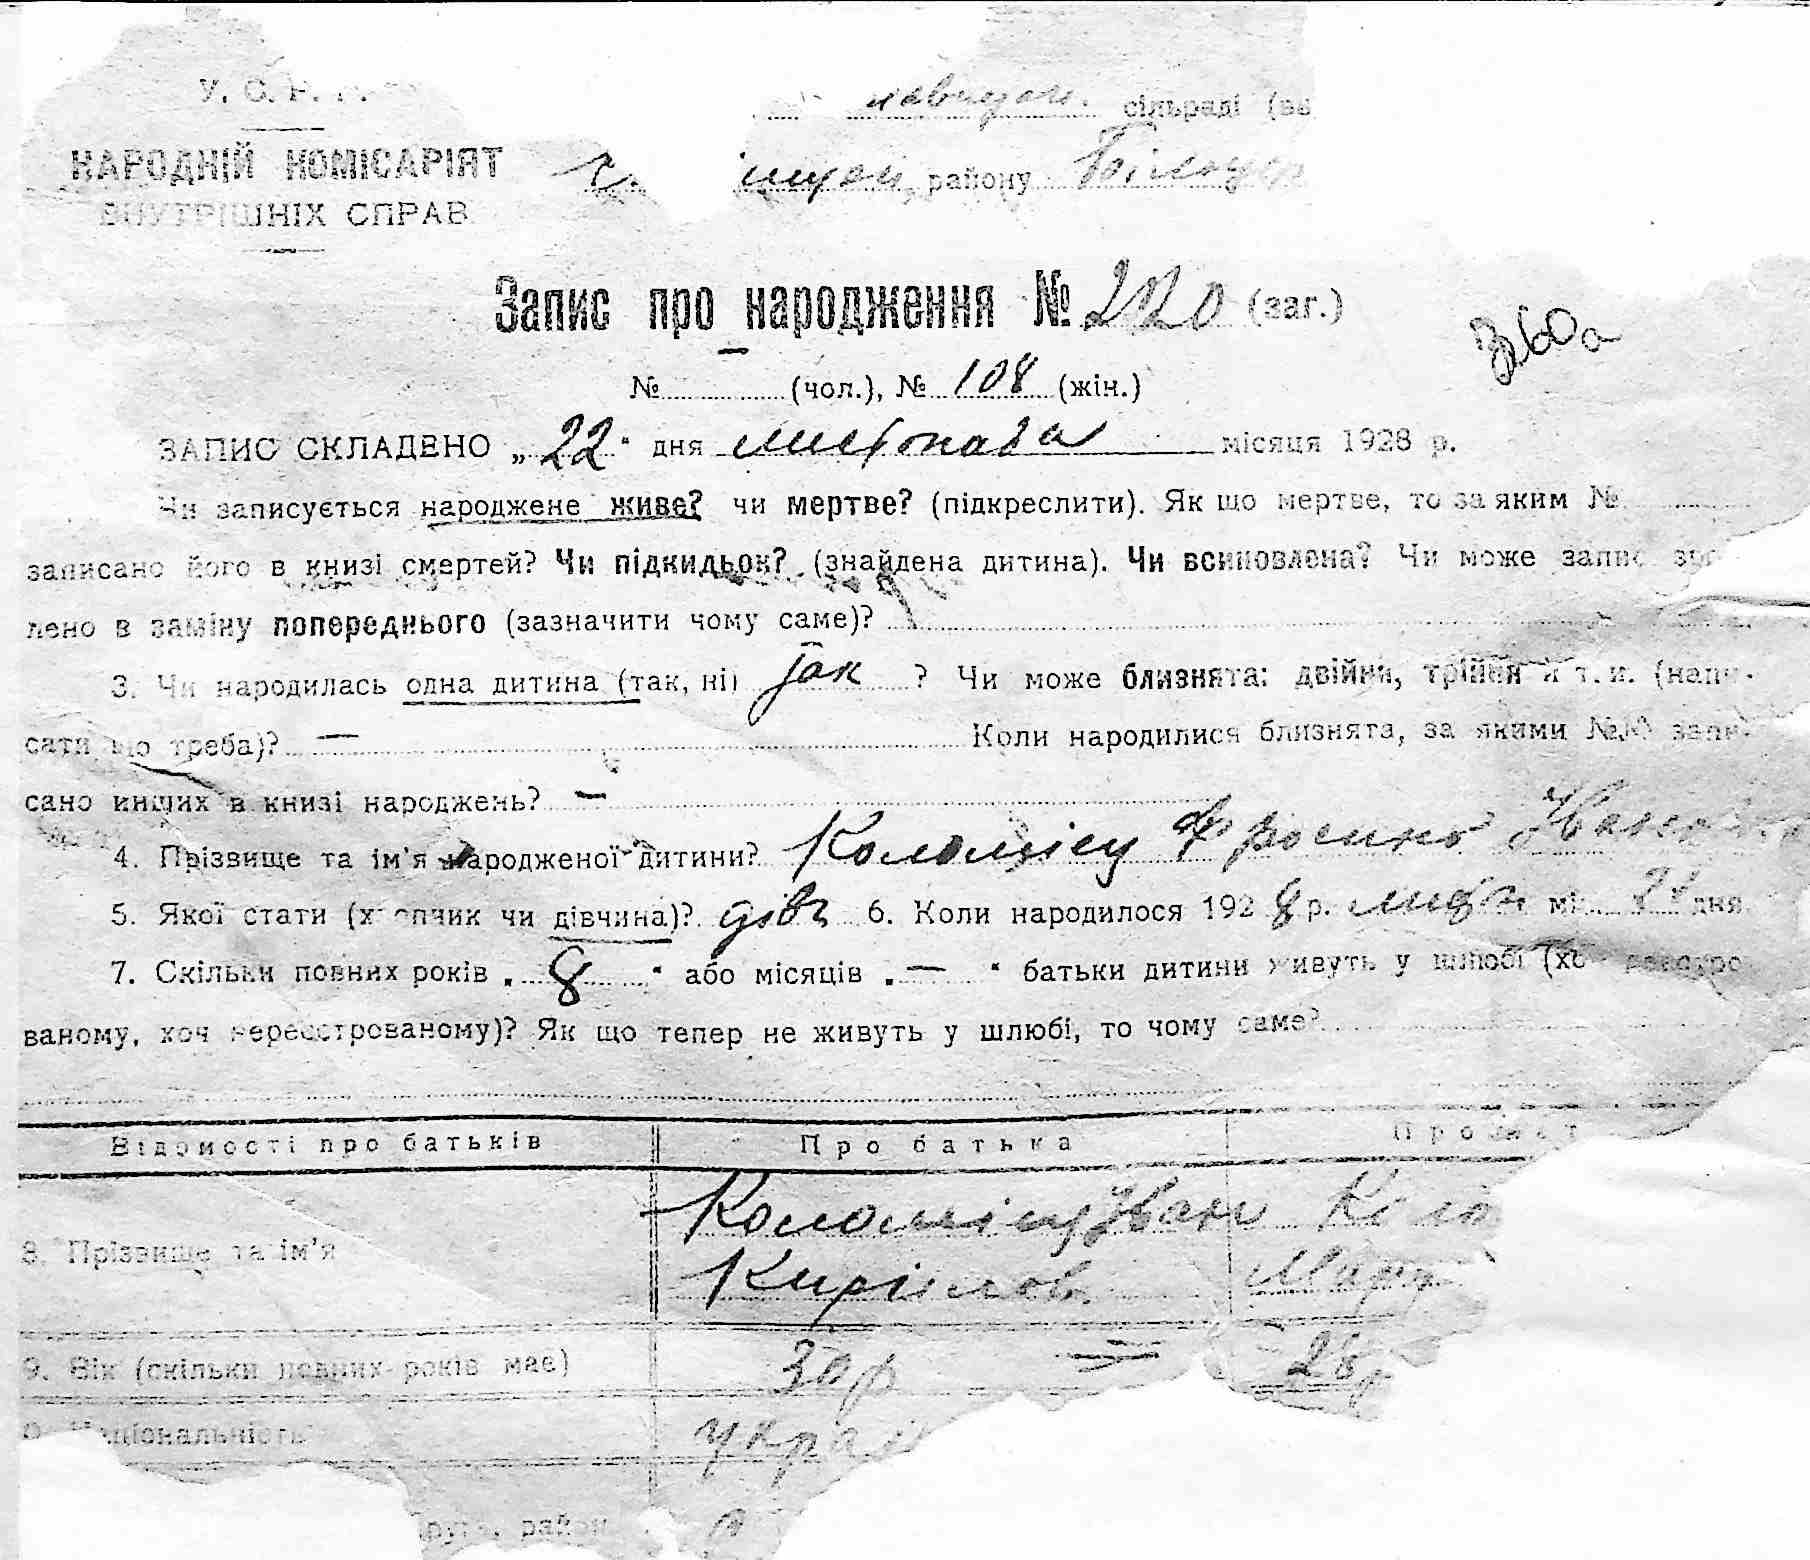 У. С. Р. Р.
сільраді
НАРОДНІЙ КОМІСАРІЯТ
району
ВНУТРІШНІХ СПРАВ
Запис про народження № 220 (заг.)
360а
№ (чол.), № 108 (жін.)
ЗАПИС СКЛАДЕНО „22“ дня листопада місяця 1928 р.
Чи записується народжене живе? чи мертве? (підкреслити). Як що мертве, то за яким №
записано його в книзі смертей? Чи підкидьок? (знайдена дитина). Чи всиновлена? Чи може запис
лено в заміну попереднього (зазначити чому саме)?
3. Чи народилась одна дитина (так, ні) так ? Чи може близнята: двійня, трійня й т. и. (напи-
сати що треба)? — Коли народилися близнята, за якими №№ запи-
сано инших в книзі народжень? —
4. Прізвище та ім'я народженої дитини? Коломієц Фросина
5. Якої стати (хлопчик чи дівчина)? дівч 6. Коли народилося 1928 р. лист міс. дня
7. Скільки повних років „8“ або місяців „—“ батьки дитини живуть у шлюбі (хоч
ваному, хоч нереєстрованому)? Як що тепер не живуть у шлюбі, то чому саме?
Відомості про батьків Про батька Про
8. Прізвище та ім'я Коломієц Иван
Кирілов.
9. Вік (скільки повних років має) 30 р 28 р
Національність украї
район